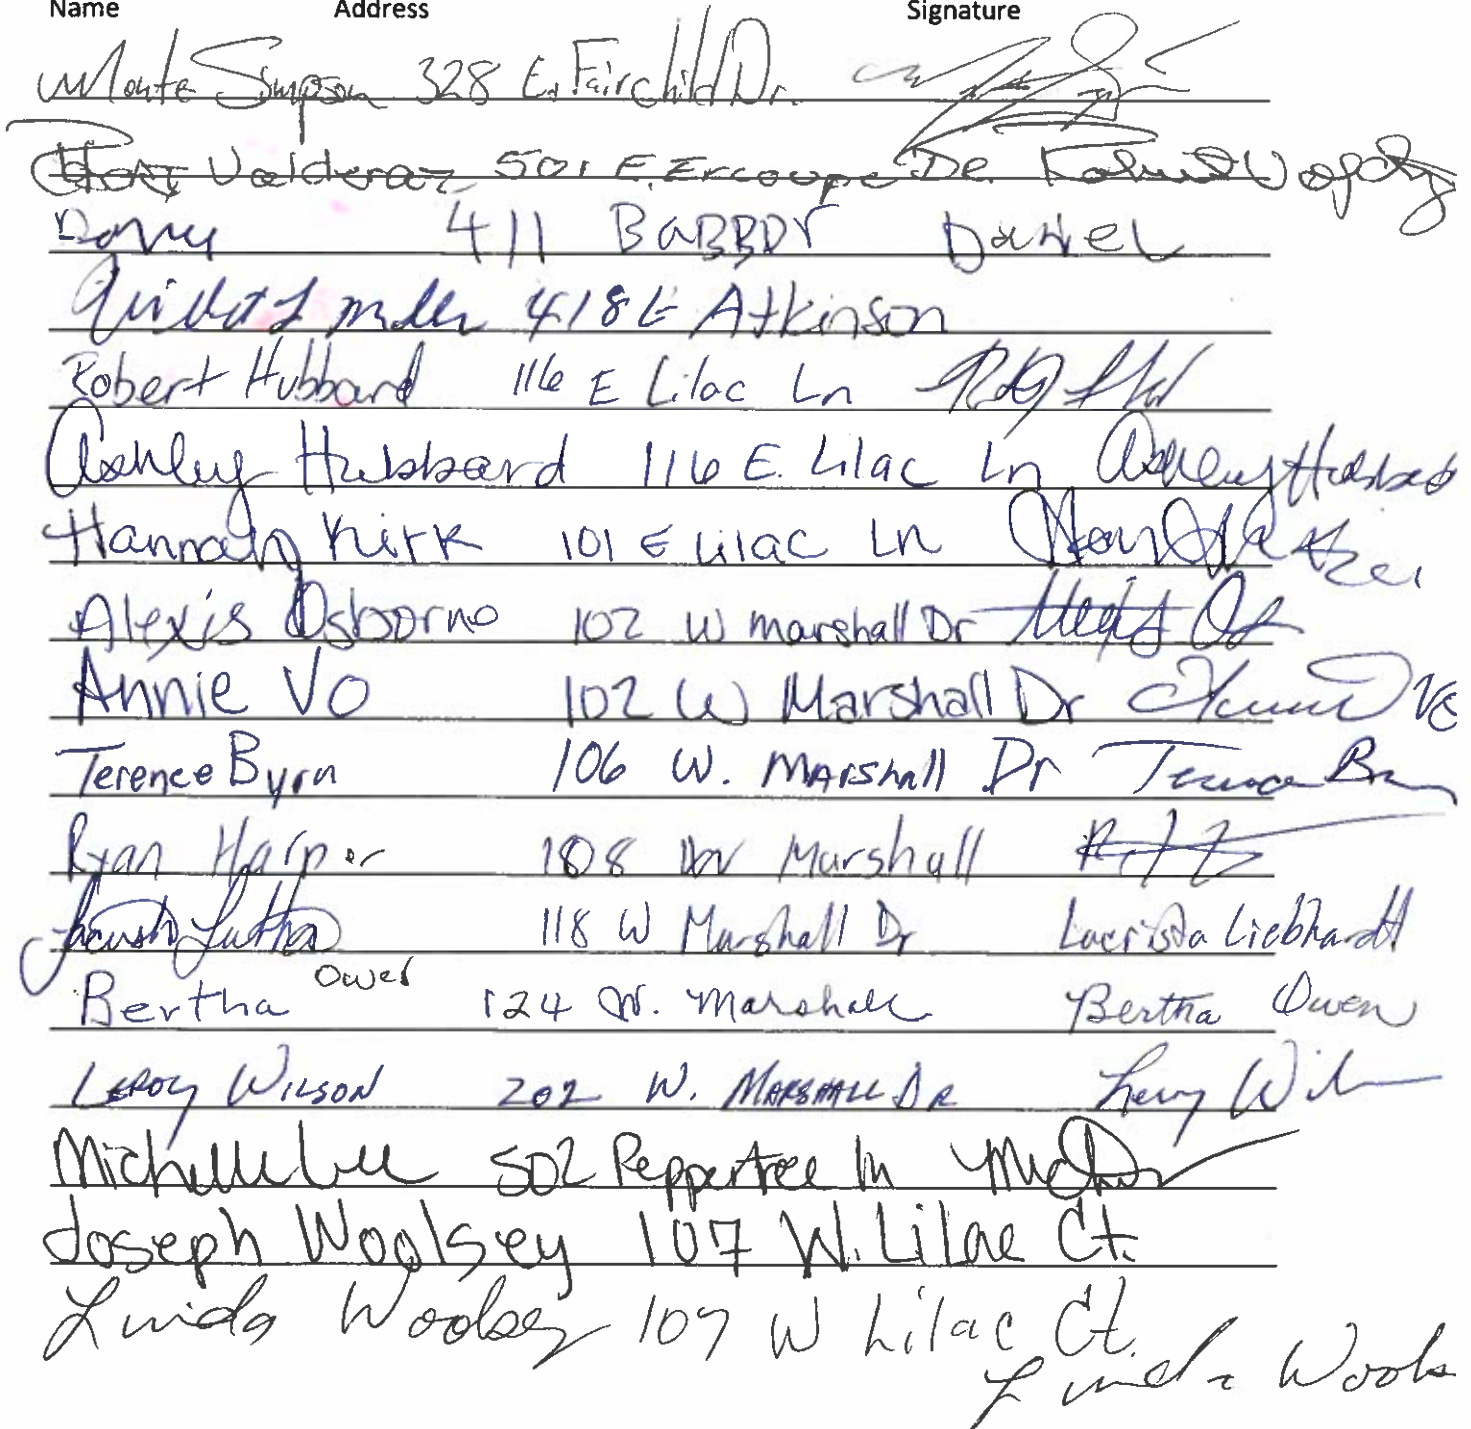 Name Address Signature
Monte Simpson 328 E. Fairchild Dr.
Valderaz 501 E. Ercoupe Dr.
411 BABBDr Daniel
418 E Atkinson
Robert Hubbard 116 E Lilac Ln
Ashley Hubbard 116 E. Lilac Ln Ashley Hubbard
Hannah Kirk 101 E Lilac Ln
Alexis Osborne 102 W Marshall Dr
Annie Vo 102 W Marshall Dr Vo
Terence Byrn 106 W. Marshall Dr
Ryan Harper 108 W Marshall
118 W Marshall Dr Lacrista Liebhardt
Bertha Owen 124 W. Marshall Bertha Owen
Leroy Wilson 202 W. Marshall Dr Leroy
Michelle Lee 502 Peppertree ln
Joseph Woolsey 107 W. Lilac Ct.
Linda Woolsey 107 W Lilac Ct.
Linda